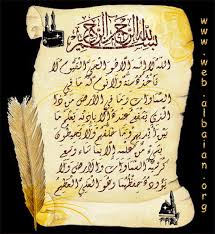 بسم الله الرحمن الرحيم
الله لا إله إلا هو الحي القيوم لا
تأخذه سنة ولا نوم له ما في
السماوات وما في الأرض من ذا
الذي يشفع عنده إلا بإذنه يعلم ما
بين أيديهم وما خلفهم ولا يحيطون
بشيء من علمه إلا بما شاء وسع
كرسيه السماوات والأرض ولا
يؤوده حفظهما وهو العلي العظيم
www.web.albaian.org